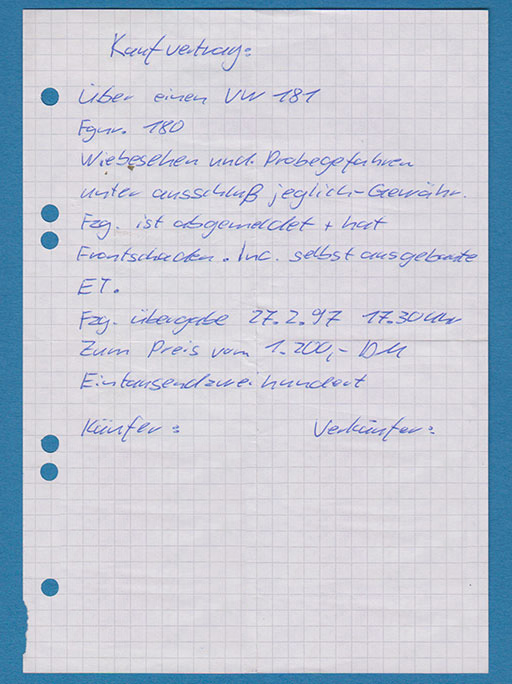 Kaufvertrag:
Über einen VW 181
Fgnr. 180
Wiebesehen und Probegefahren
unter ausschluß jeglich-Gewähr.
Fzg. ist abgemeldet + hat
Frontschaden. Inc. selbst ausgebaute
ET.
Fzg. übergabe 27.2.97 17.30 Uhr
Zum Preis vom 1.200,- DM
Eintausendzweihundert
Käufer: Verkäufer: